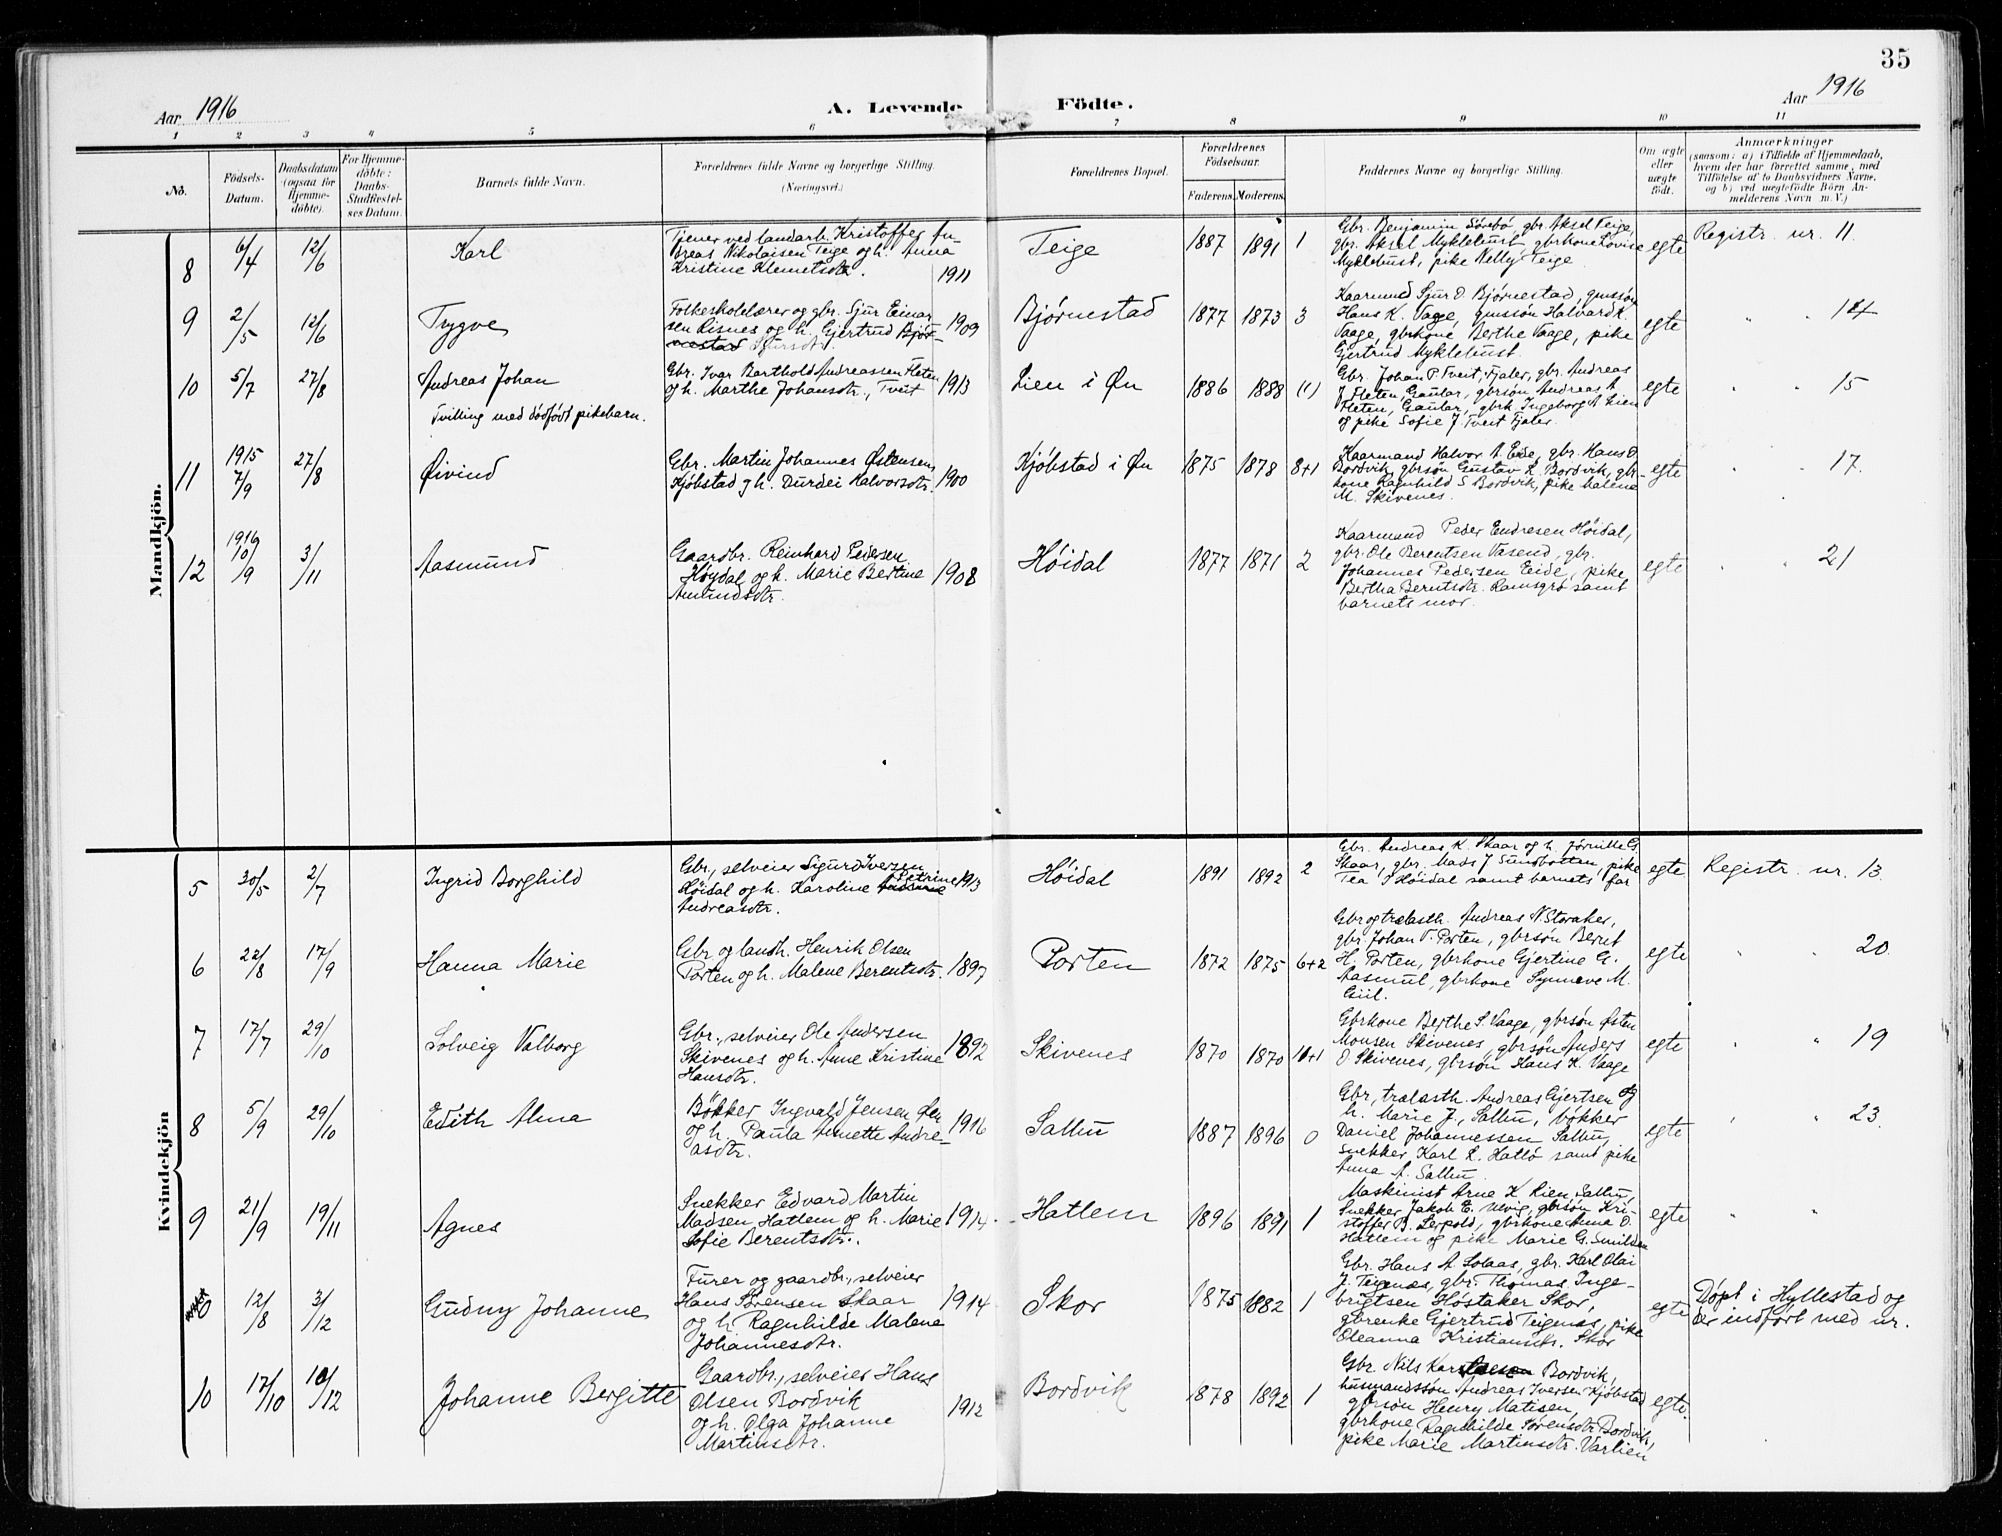 35
Aar 1916
A. Levende Födte.
Aar 1916
1 2 3 4 5 6 7 8 9 10 11
No.
Födsels-Datum.
Daabsdatum (ogsaa for Hjemmedöbte).
For Hjemmedöbte: Daabs-Stadfæstelses Datum.
Barnets fulde Navn.
Forældrenes fulde Navne og borgerlige Stilling.
(Næringsvei.)
Forældrenes Bopæl.
Forældrenes Födselsaar.
Faderens. Moderens.
Faddernes Navne og borgerlige Stilling.
Om ægte eller uægte födt.
Anmærkninger
(saasom: a) i Tilfælde af Hjemmedaab, hvem der har forrettet samme, med Tilföielse af to Daabsvidners Navne, og b) ved uægtefödte Börn Anmelderens Navn m. V.)
Mandkjön.
8 6/4 12/6 Karl
Tjener ved landarb. Kristoffer An-
dreas Nikolaisen Teige og h. Anna
Kristine Klemetsdtr. 1911
Teige 1887 1891 1
Gbr. Benjamin Sörebö, gbr. Aksel Teige,
gbr. Aksel Myklebust, gbrkone Lovise
Myklebust, pike Nelly Teige
egte Registr. nr. 11.
9 2/5 12/6 Trygve
Folkeskolelærer og gbr. Sjur Einar
sen Risnes og h. Gjertrud Bjør-
nestad Sjursdtr. 1909
Bjørnestad 1877 1873 3
Kaarmand Sjur O. Bjørnestad, gmssøn
Hans K. Vage, gmssøn Halvard K.
Vaage, gbrkone Berthe Vaage, pike
Gjertrud Myklebust.
egte " " 14
10 5/7 27/8 Andreas Johan
Tvilling med dødfødt pikebarn.
Gbr. Ivar Barthold Andreassen Fleten
og h. Marthe Johansdtr., Tveit 1913
Lien i Øn 1886 1888 (1)
Gbr. Johan P. Tveit, Fjaler, gbr. Andreas
J. Fleten, Gaular, gbrsøn Andreas A.
Fleten, Gaular, gbrk. Ingeborg A. Lien
og pike Sofie J. Tveit Fjaler.
egte " " 15
11 1915 7/9 27/8 Øivind
Gbr. Martin Johannes Østensen
Kjøbstad og h. Durdei Halvorsdtr. 1900
Kjøbstad i Øn 1875 1878 8+1
Kaarmand Halvor A. Eide, gbr. Hans O
Bordvik, gbrsøn Gustav L. Bordvik, gbr-
kone Ragnhild S Bordvik, pike Malene
M. Skivenes.
egte " " 17.
12 1916 10/9 3/11 Aasmund
Gaardbr. Reinhard Pedersen
Høydal og h. Marie Bertine
Amundsdtr. 1908
Høidal 1877 1871 2
Kaarmand Peder Endresen Høidal,
gbr. Ole Berentsen Vasend, gbr.
Johannes Pedersen Eide, pike
Bertha Berntsdtr. Ramsgrø samt
barnets mor.
egte " " 21
Kvindekjön
5 30/5 2/7 Ingrid Borghild
Gbr., selveier Sigurd Iversen
Høidal og h. Karoline Petrine
Andreasdtr. 1913
Høidal 1891 1892 2
Gbr. Andreas K. Skaar og h. Jørnille G.
Skaar, gbr. Mads J Sundbotten, pike
Tea S Høidal samt barnets far
egte Registr. nr. 13.
6 22/8 17/9 Hanna Marie
Gbr og landh. Henrik Olsen
Porten og h. Malene Berentsdtr. 1897
Porten 1872 1875 6+2
Gbr og trælasth. Andreas N. Storaker,
gbr. Johan T. Porten, gbrsøn Bernt
H. Porten, gbrkone Gjertine G.
Aasmul, gbrkone Synneve M.
Giil.
egte " " 20.
7 17/7 29/10 Solveig Valborg
Gbr., selveier Ole Andersen
Skivenes og h. Anne Kristine
Hansdtr. 1892
Skivenes 1870 1870 10+1
Gbrkone Berthe S. Vaage, gbrsøn Østen
Monsen Skivenes, gbrsøn Anders
O Skivenes, gbrsøn Hans K. Vaage
egte " " 19
8 5/9 29/10 Edith Alma
Bøkker Ingvald Jensen Øen
og h. Paula Annette Andre-
asdtr. 1916
Salbu 1887 1896 0
Gbr, trælasth. Andreas Gjertsen og
h. Marie J., Salbu, bøkker
Daniel Johannessen Salbu,
snekker Karl L. Hatlø samt pike
Anna A. Salbu
egte " " 23.
9 21/9 19/11 Agnes
Snekker Edvard Martin
Madsen Hatlem og h. Marie
Sofie Berentsdtr. 1914.
Hatlem 1896 1891 1
Maskinist Arne K Lien Salbu,
Snekker Jakob E. Ulvig, gbrsøn Kri-
stoffer B. Lerpold, gbrkone Anna O.
Hatlem og pike Marie G. Smilden
egte " "
10 12/8 3/12 Gudny Johanne
Furer og gaardbr., selveier
Hans Sørensen Skaar
og h. Ragnhilde Malene
Johannesdtr. 1914
Skor 1875 1882 1
Gbr. Hans A. Solaas, gbr. Karl Olai
J. Teigenæs, gbr. Thomas Inge-
brigtsen Høstaker Skor,
gbrenke Gjertrud Teigenæs, pike
Oleanna Kristiansdtr. Skor
egte Døpt i Hyllestad og
der indført med nr.
10 17/10 10/12 Johanne Bergitte
Gaardbr., selveier Hans
Olsen Bordvik
og h. Olga Johanne
Martinsdtr. 1912
Bordvik 1878 1892 1
Gbr. Nils Karstensen Bordvik,
husmandssøn Andreas Iversen Kjøbstad
gbrsøn Henry Matisen,
gbrkone Ragnhilde Sørensdtr Bordvik,
pike Marie Martinsdtr. Varlien
egte.